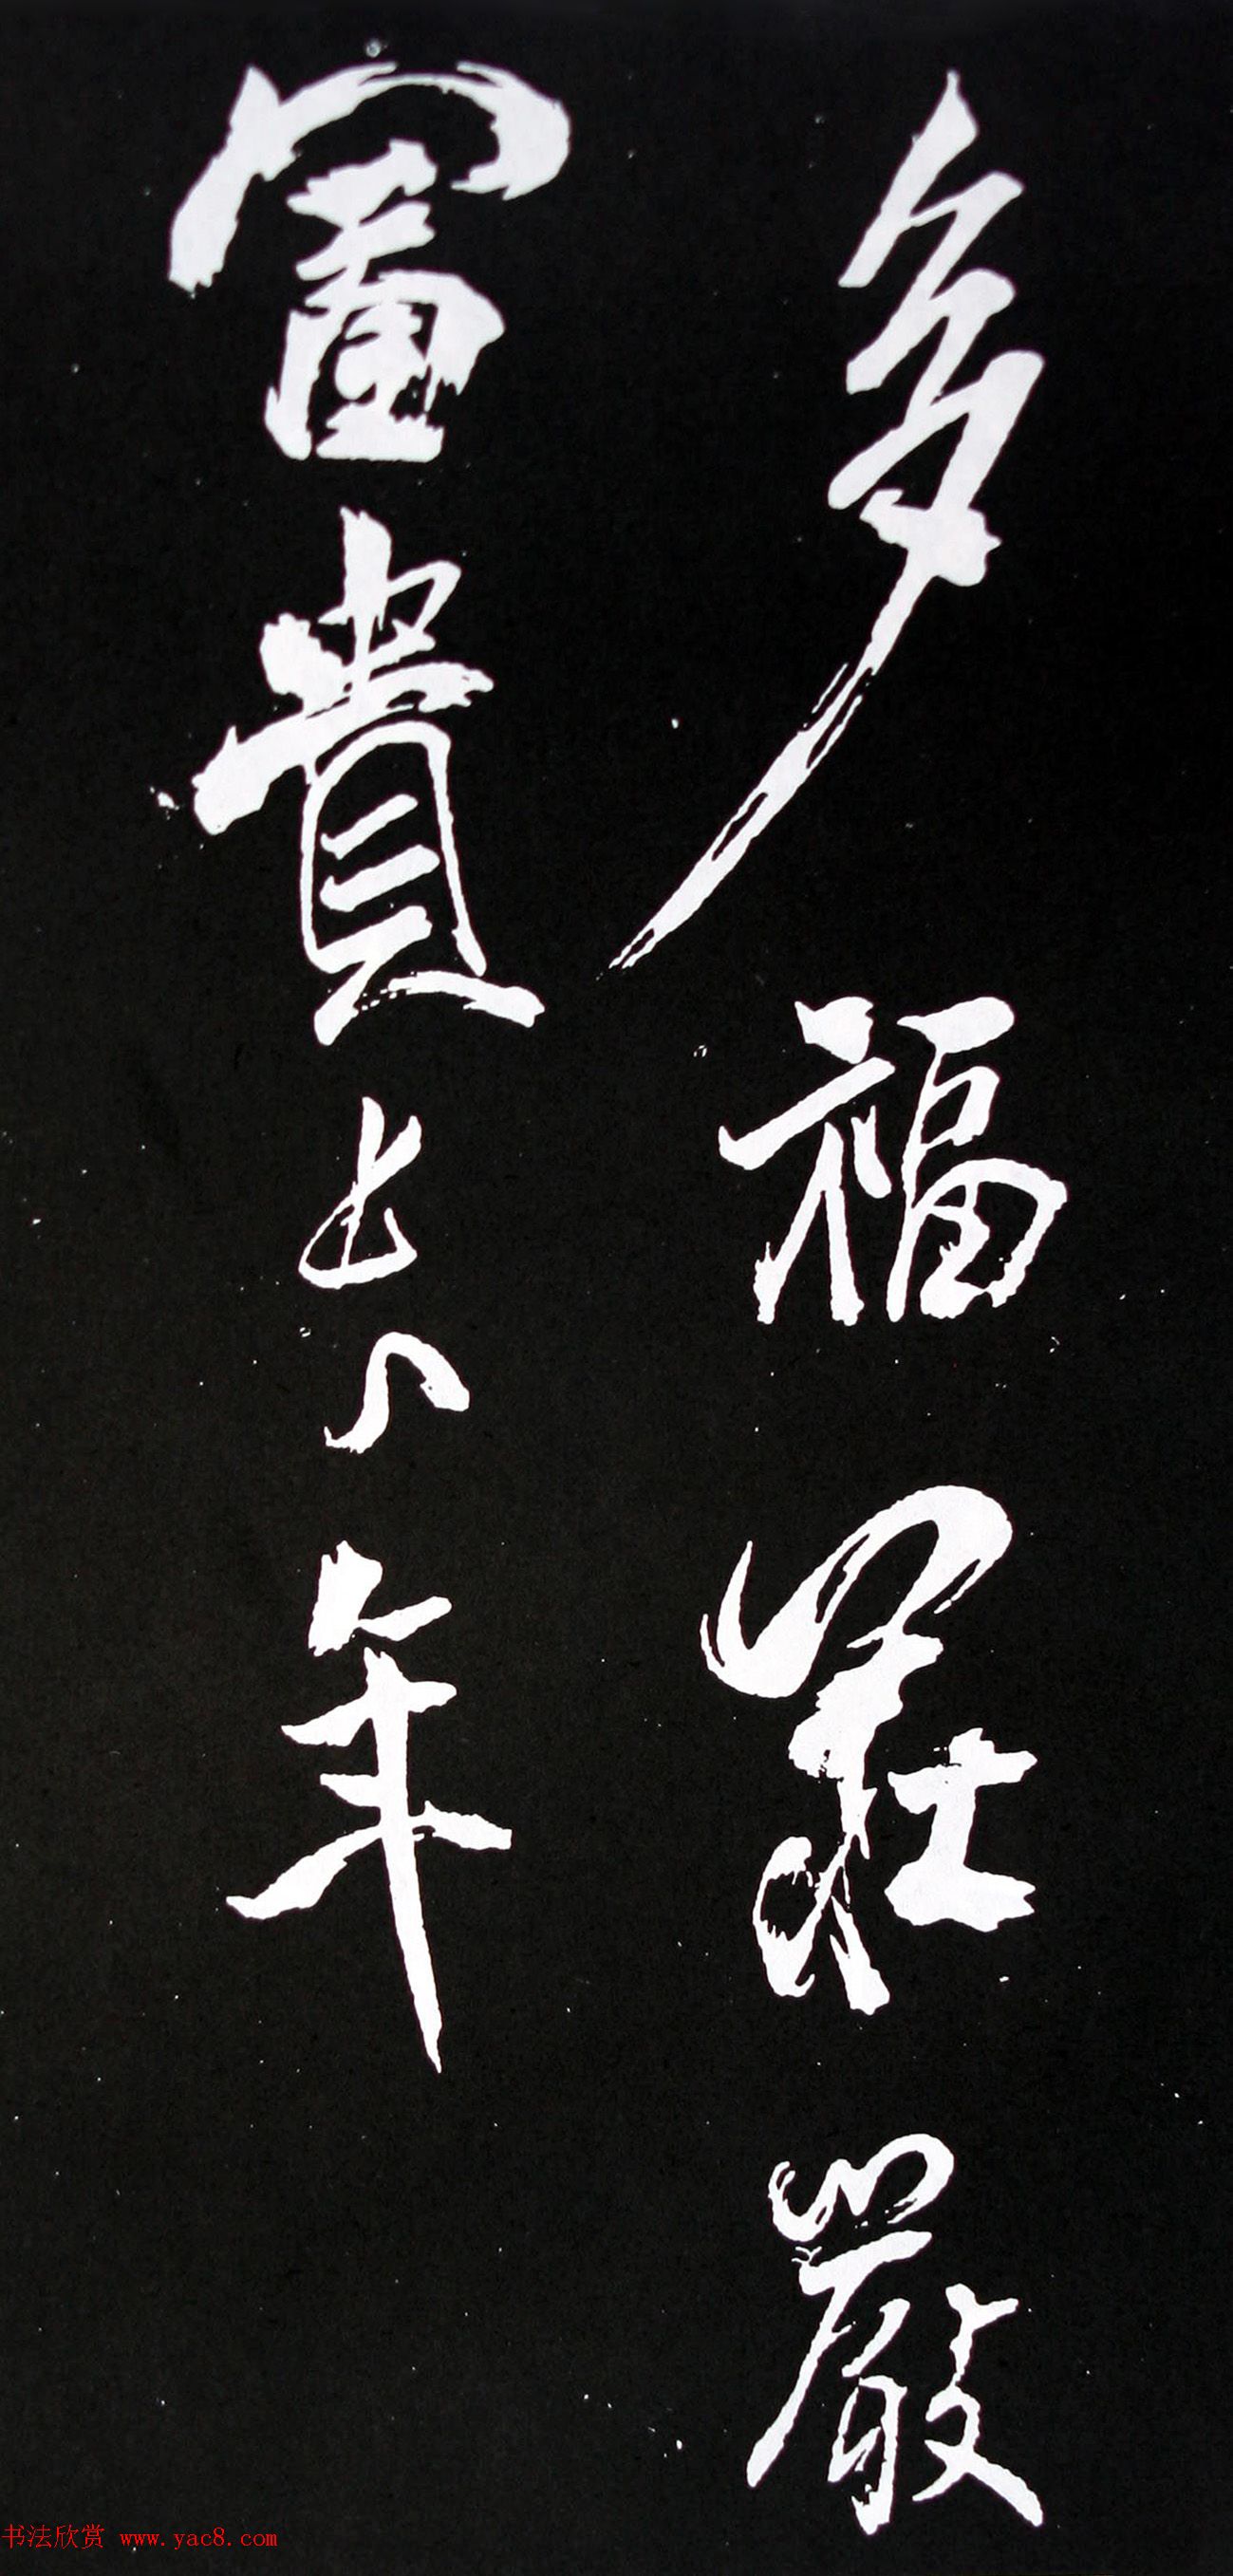 多福莊嚴
富貴年
书法欣赏 www.yac8.com